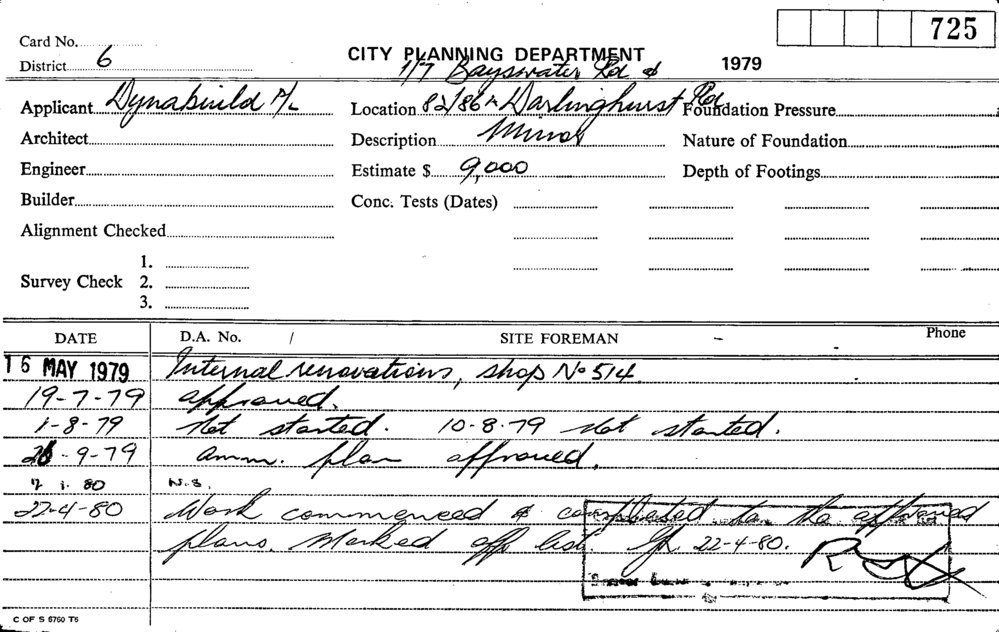 725
Card No.
CITY PLANNING DEPARTMENT 1979
District 6
1/7 Bayswater Rd &
Applicant Dynabuild P/L Location 82/86A Darlinghurst Rd Foundation Pressure
Architect Description Minor Nature of Foundation
Engineer Estimate $ 9,000 Depth of Footings
Builder Conc. Tests (Dates)
Alignment Checked
1.
Survey Check 2.
3.
DATE D.A. No. / SITE FOREMAN - Phone
16 MAY 1979 Internal renovations, shop No 514.
19-7-79 approved.
1-8-79 Not started. 10-8-79 Not started.
26-9-79 amm. plan approved.
1. 80 N.S.
22-4-80 Work commenced & completed to the approved
plans. Marked off list. 22-4-80.
C OF S 5760 T6